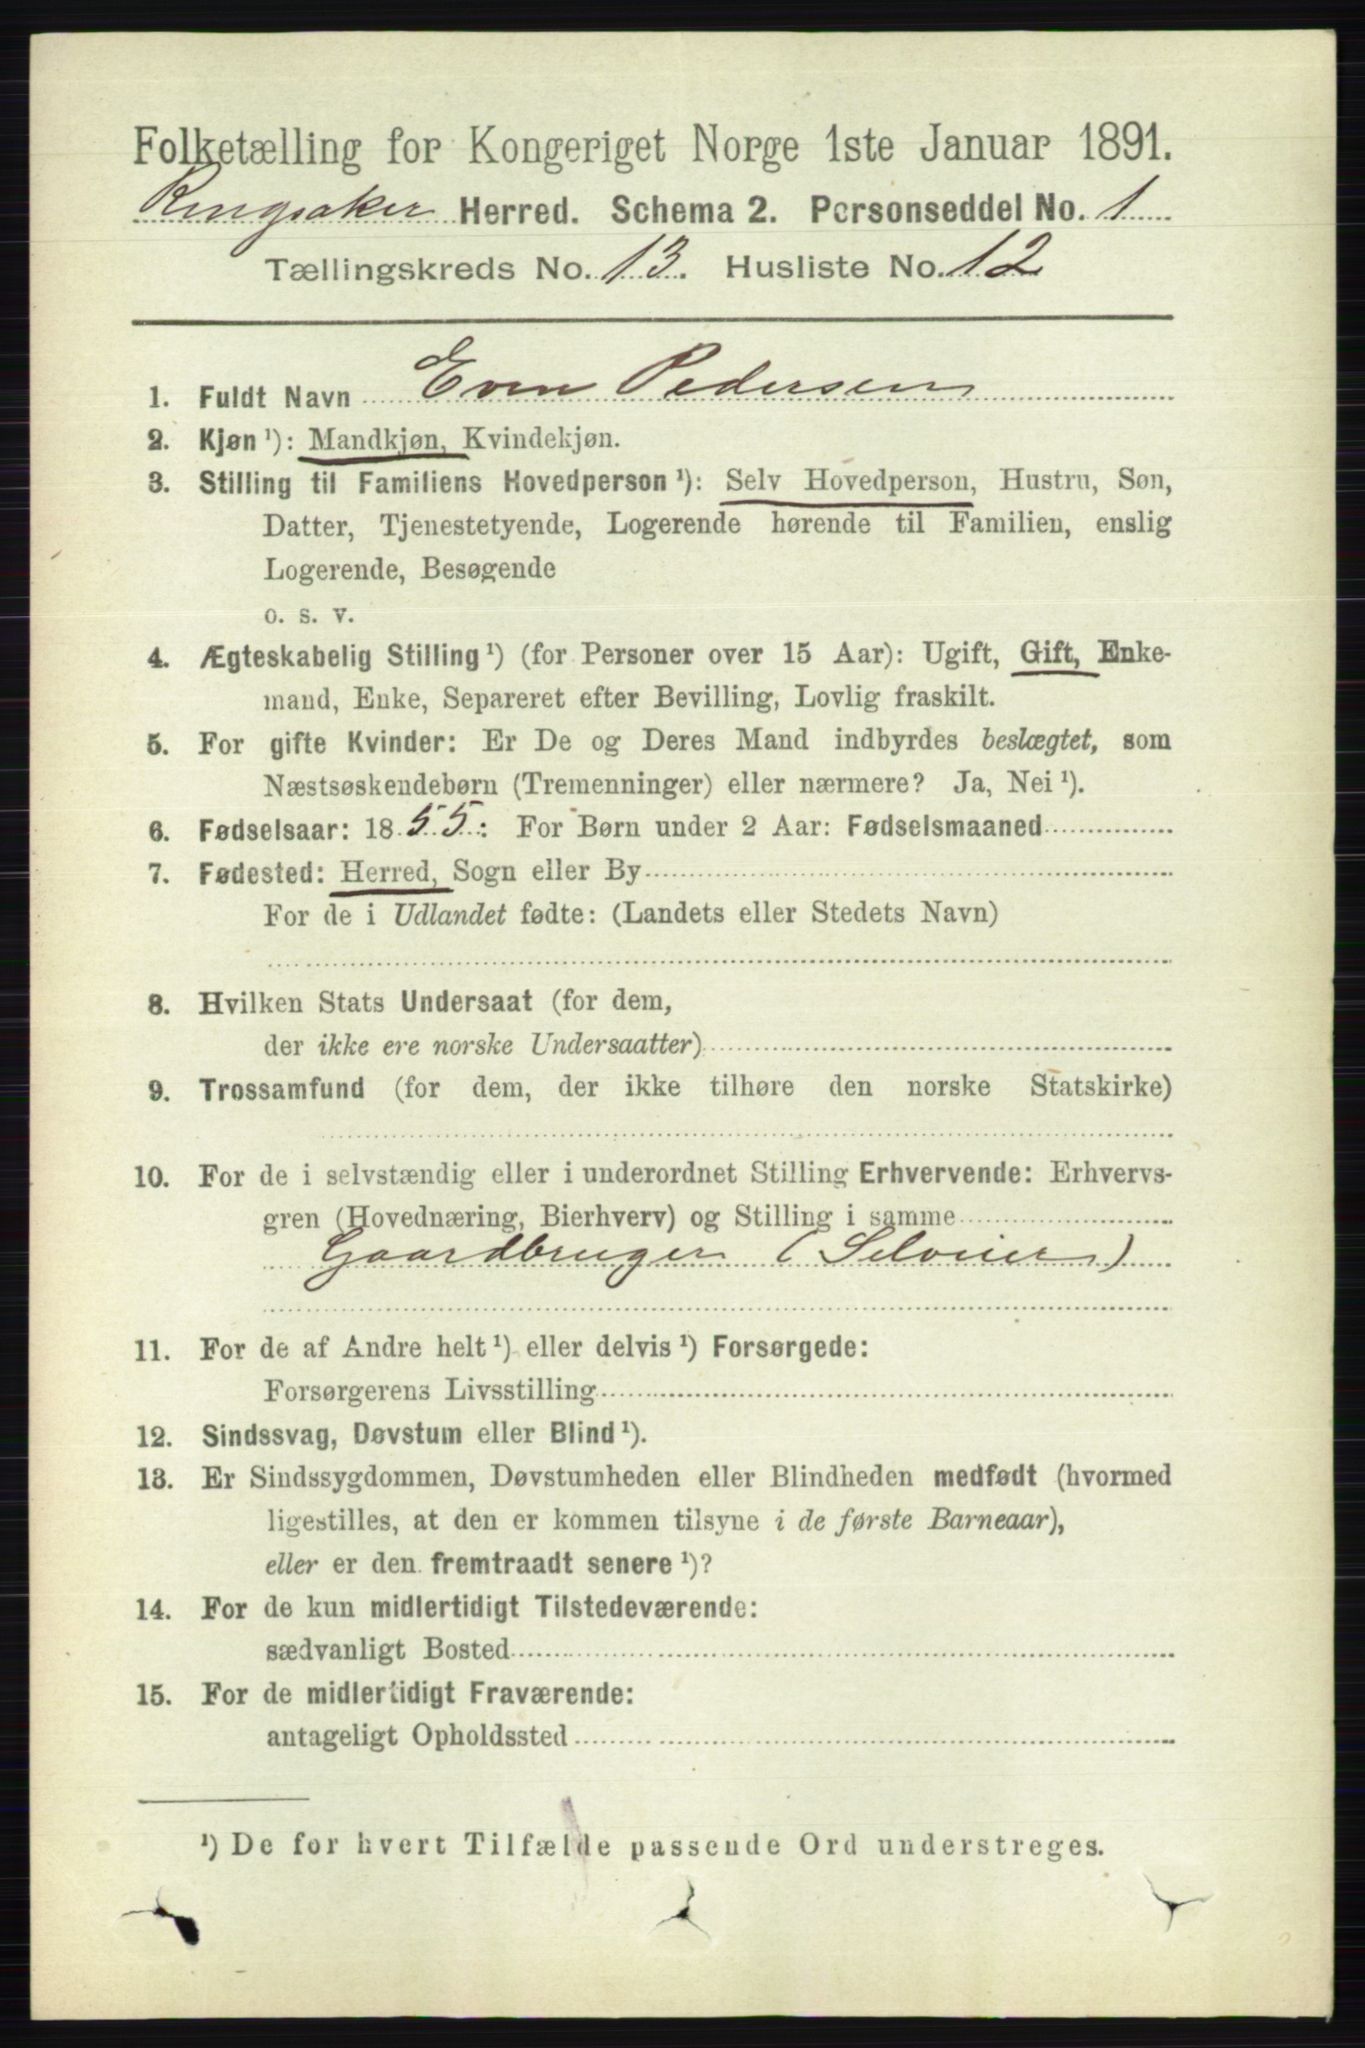 Folketælling for Kongeriget Norge 1ste Januar 1891.
Ringsaker Herred. Schema 2. Personseddel No. 1
Tællingskreds No. 13. Husliste No. 12
1. Fuldt Navn Even Pedersen
2. Kjøn ¹): Mandkjøn, Kvindekjøn.
3. Stilling til Familiens Hovedperson ¹): Selv Hovedperson, Hustru, Søn,
Datter, Tjenestetyende, Logerende hørende til Familien, enslig
Logerende, Besøgende
o. s. v.
4. Ægteskabelig Stilling ¹) (for Personer over 15 Aar): Ugift, Gift, Enke-
mand, Enke, Separeret efter Bevilling, Lovlig fraskilt.
5. For gifte Kvinder: Er De og Deres Mand indbyrdes beslægtet, som
Næstsøskendebørn (Tremenninger) eller nærmere? Ja, Nei ¹).
6. Fødselsaar: 1855: For Børn under 2 Aar: Fødselsmaaned
7. Fødested: Herred, Sogn eller By
For de i Udlandet fødte: (Landets eller Stedets Navn)
8. Hvilken Stats Undersaat (for dem,
der ikke ere norske Undersaatter)
9. Trossamfund (for dem, der ikke tilhøre den norske Statskirke)
10. For de i selvstændig eller i underordnet Stilling Erhvervende: Erhvervs-
gren (Hovednæring, Bierhverv) og Stilling i samme
Gaardbruger (Selveier)
11. For de af Andre helt ¹) eller delvis ¹) Forsørgede:
Forsørgerens Livsstilling
12. Sindssvag, Døvstum eller Blind ¹).
13. Er Sindssygdommen, Døvstumheden eller Blindheden medfødt (hvormed
ligestilles, at den er kommen tilsyne i de første Barneaar),
eller er den fremtraadt senere ¹)?
14. For de kun midlertidigt Tilstedeværende:
sædvanligt Bosted
15. For de midlertidigt Fraværende:
antageligt Opholdssted
¹) De for hvert Tilfælde passende Ord understreges.